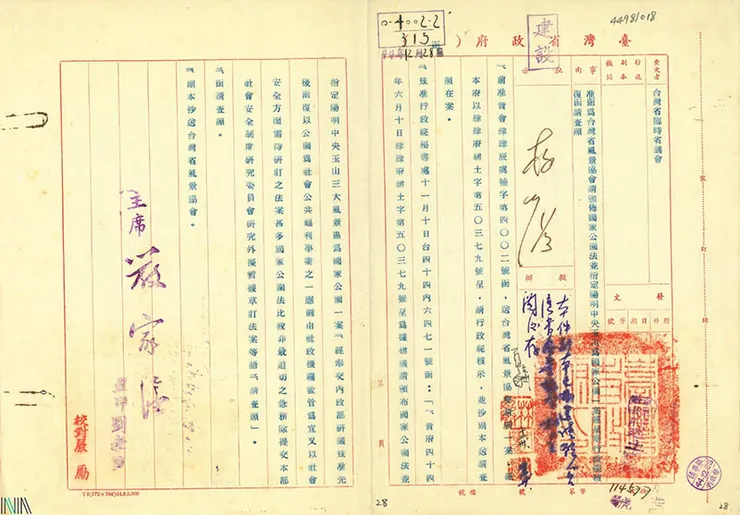 臺灣省政府（
建設
449810/18
0-4002-2
315
44年12月28
受文者
行送副本機關
台灣省臨時省議會
事由
准函為台灣省風景協會請頒佈國家公園法並指定陽明中央玉山為國家公園一案
復函請查照
發文
附件
日期
字號
擬辦
一、前准貴會肆肆辰虞補字第四〇〇二號函，送台灣省風景協
本府以肆肆府建土字第五〇三七九號呈，請行政院核示，並抄副本送請查
照在案。
二、茲准行政院秘書處十一月十日台四十四內六四七一號函：「一、貴府四十四
年六月十日肆肆府建土字第五〇三七九號呈為據建議請頒布國家公園法並
指定陽明中央玉山三大風景區為國家公園一案。二、經奉交內政部研議茲准先
後函復以公園為社會公共福利事業之一應劃由社政機構統管為宜又以社會
安全方面需待研訂之法案甚多國家公園法比較非最迫切之急務除提交本部
社會安全制度研究委員會研究外擬暫緩草訂法案等語。三、函請查照」。
三、函請查照。
四、副本抄送台灣省風景協會。
主席
嚴家淦
校對嚴 勵
第 頁
字第 號
檔號
114537
28
28